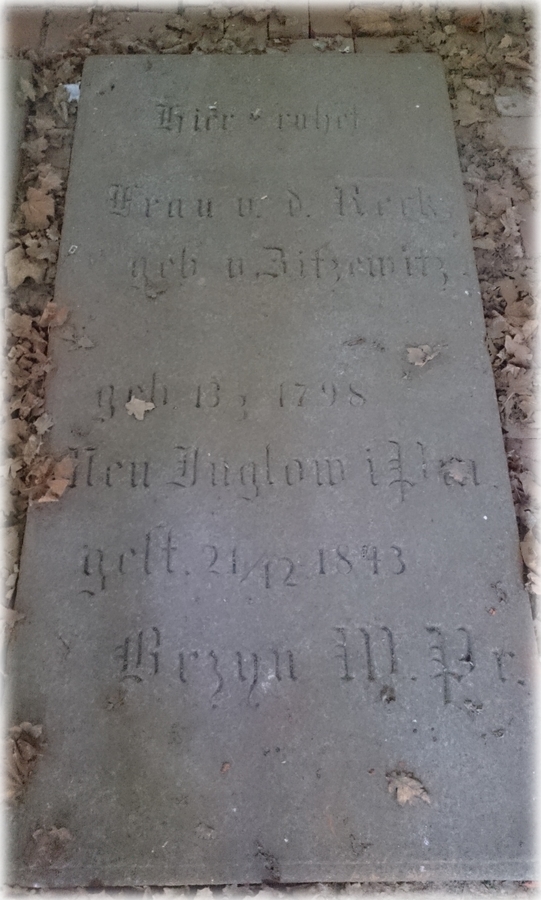 Hier ruhet
Frau v. d. Reck
geb v. Zitzewitz
geb 13/3 1798
Neu Juglow i Pom.
gest. 21/12 1843
Brzyn W. Pr.